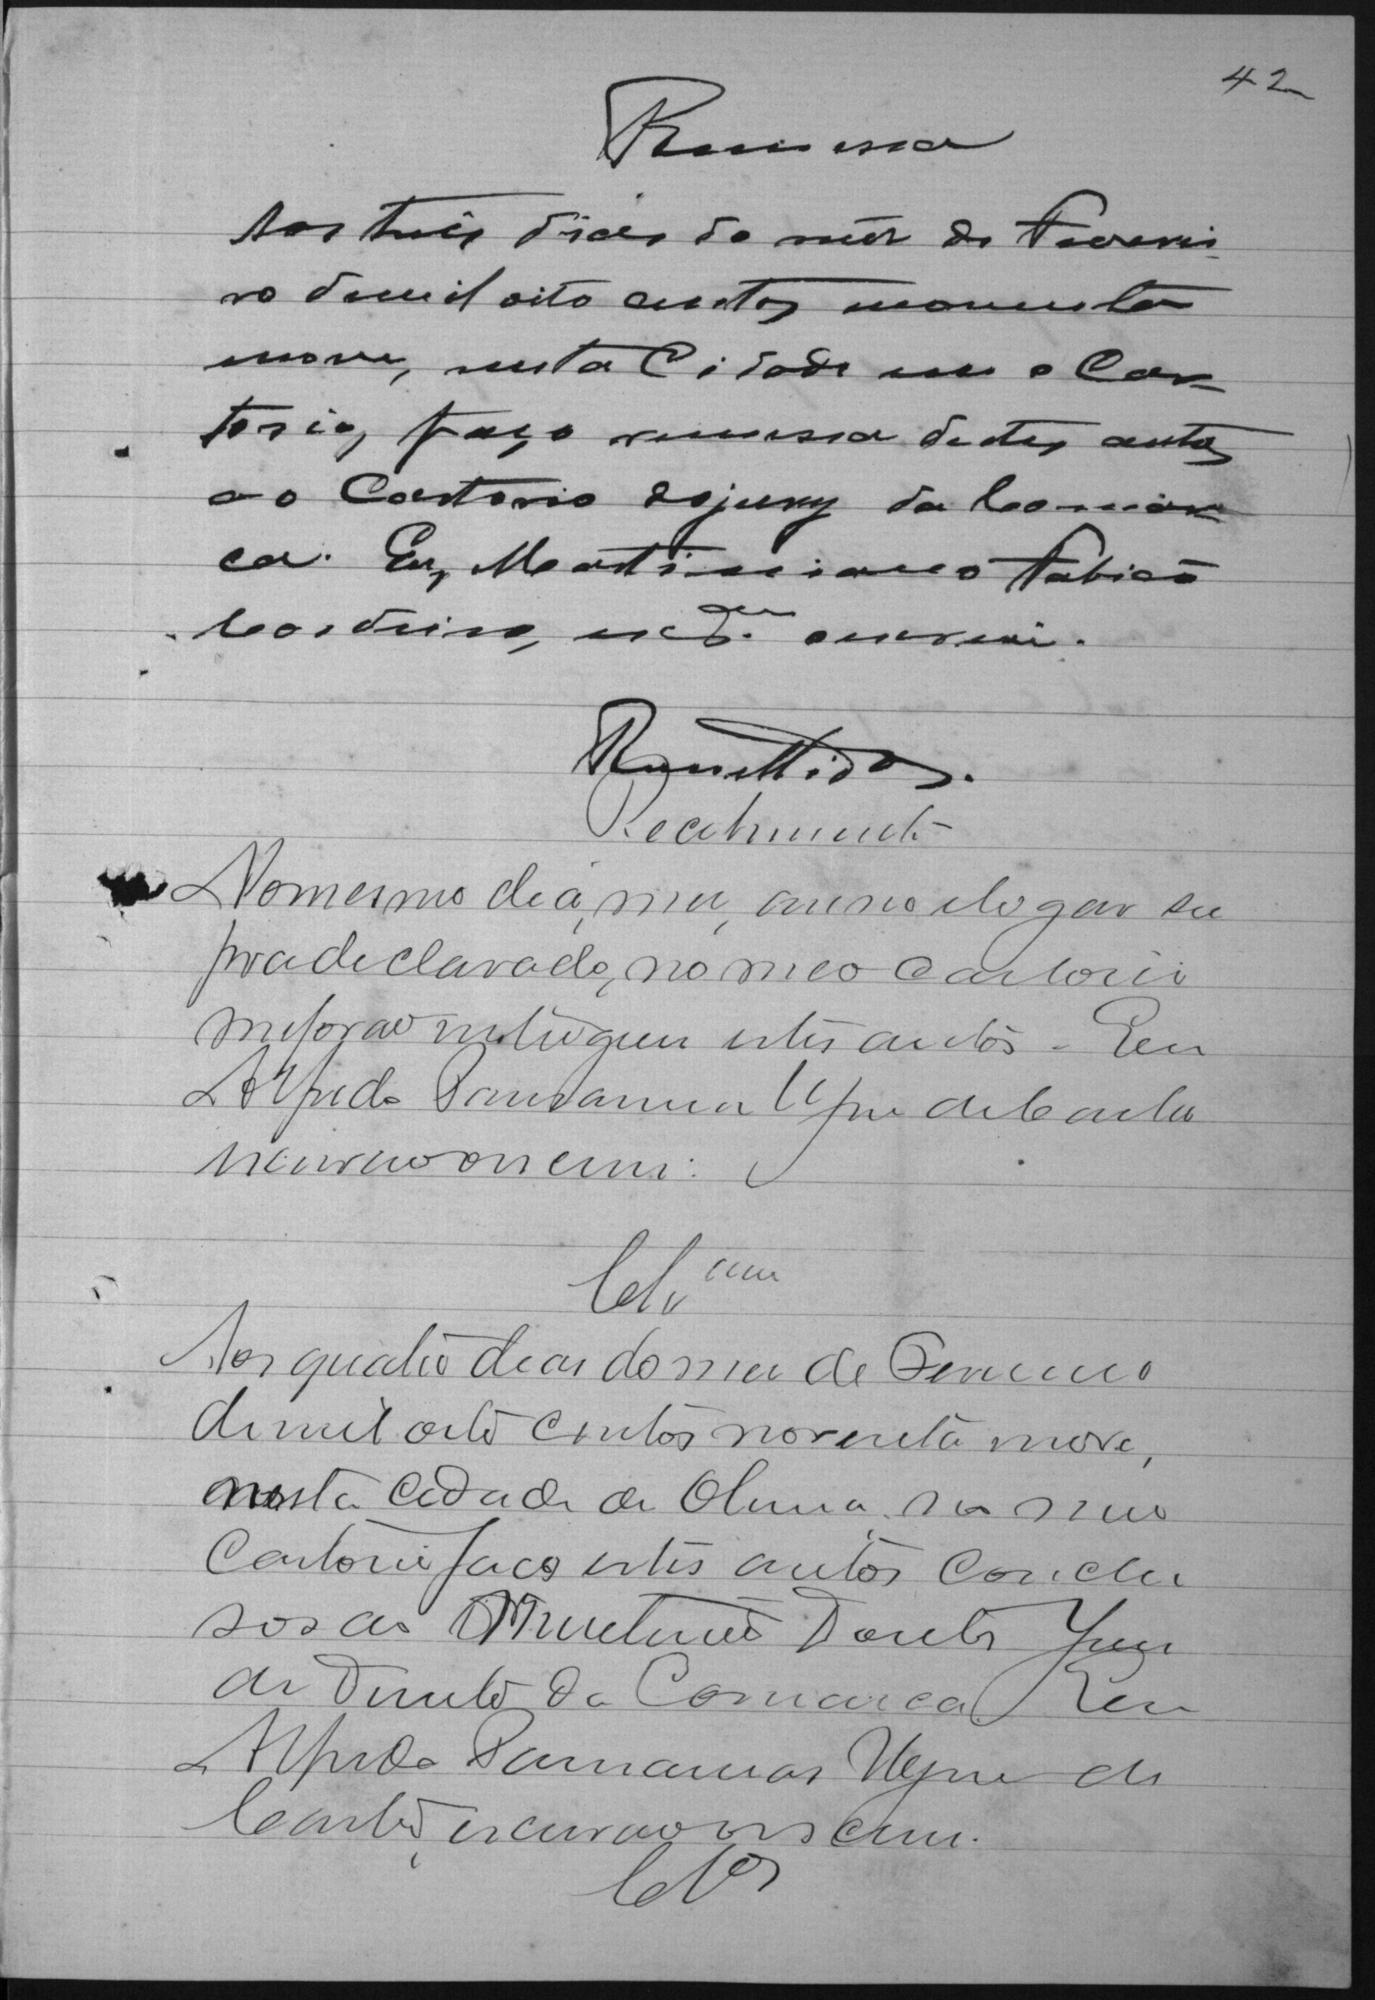 42
Remessa
Aos trêis dias do mêz de Feverei-
ro de mil oito centos noventa
nove, nesta Cidade em o Car-
torio, faço remessa destes autos
ao Cartorio do jury da Comar-
ca. Eu, Martiniano Fabião
Cordeiro, escr.am escrevi.
Remettidos.
Recebimento
No mesmo dia, mez, anno e logar su
pra declarado, no meo cartorio
me forão entregues estes autos - Eu
Alfredo de Castro
escrivão o escrevi.
Clsam
Aos quatro dias do mez de Fevereiro
de mil oito centos noventa nove,
nesta cidade de Olinda, no meu
Cartorio faço estes autos conclu
sos ao Meretissimo Doutor Juiz
de Direito da Comarca Eu
Alfredo de
Castro, escrivão o escrevi.
Clsos